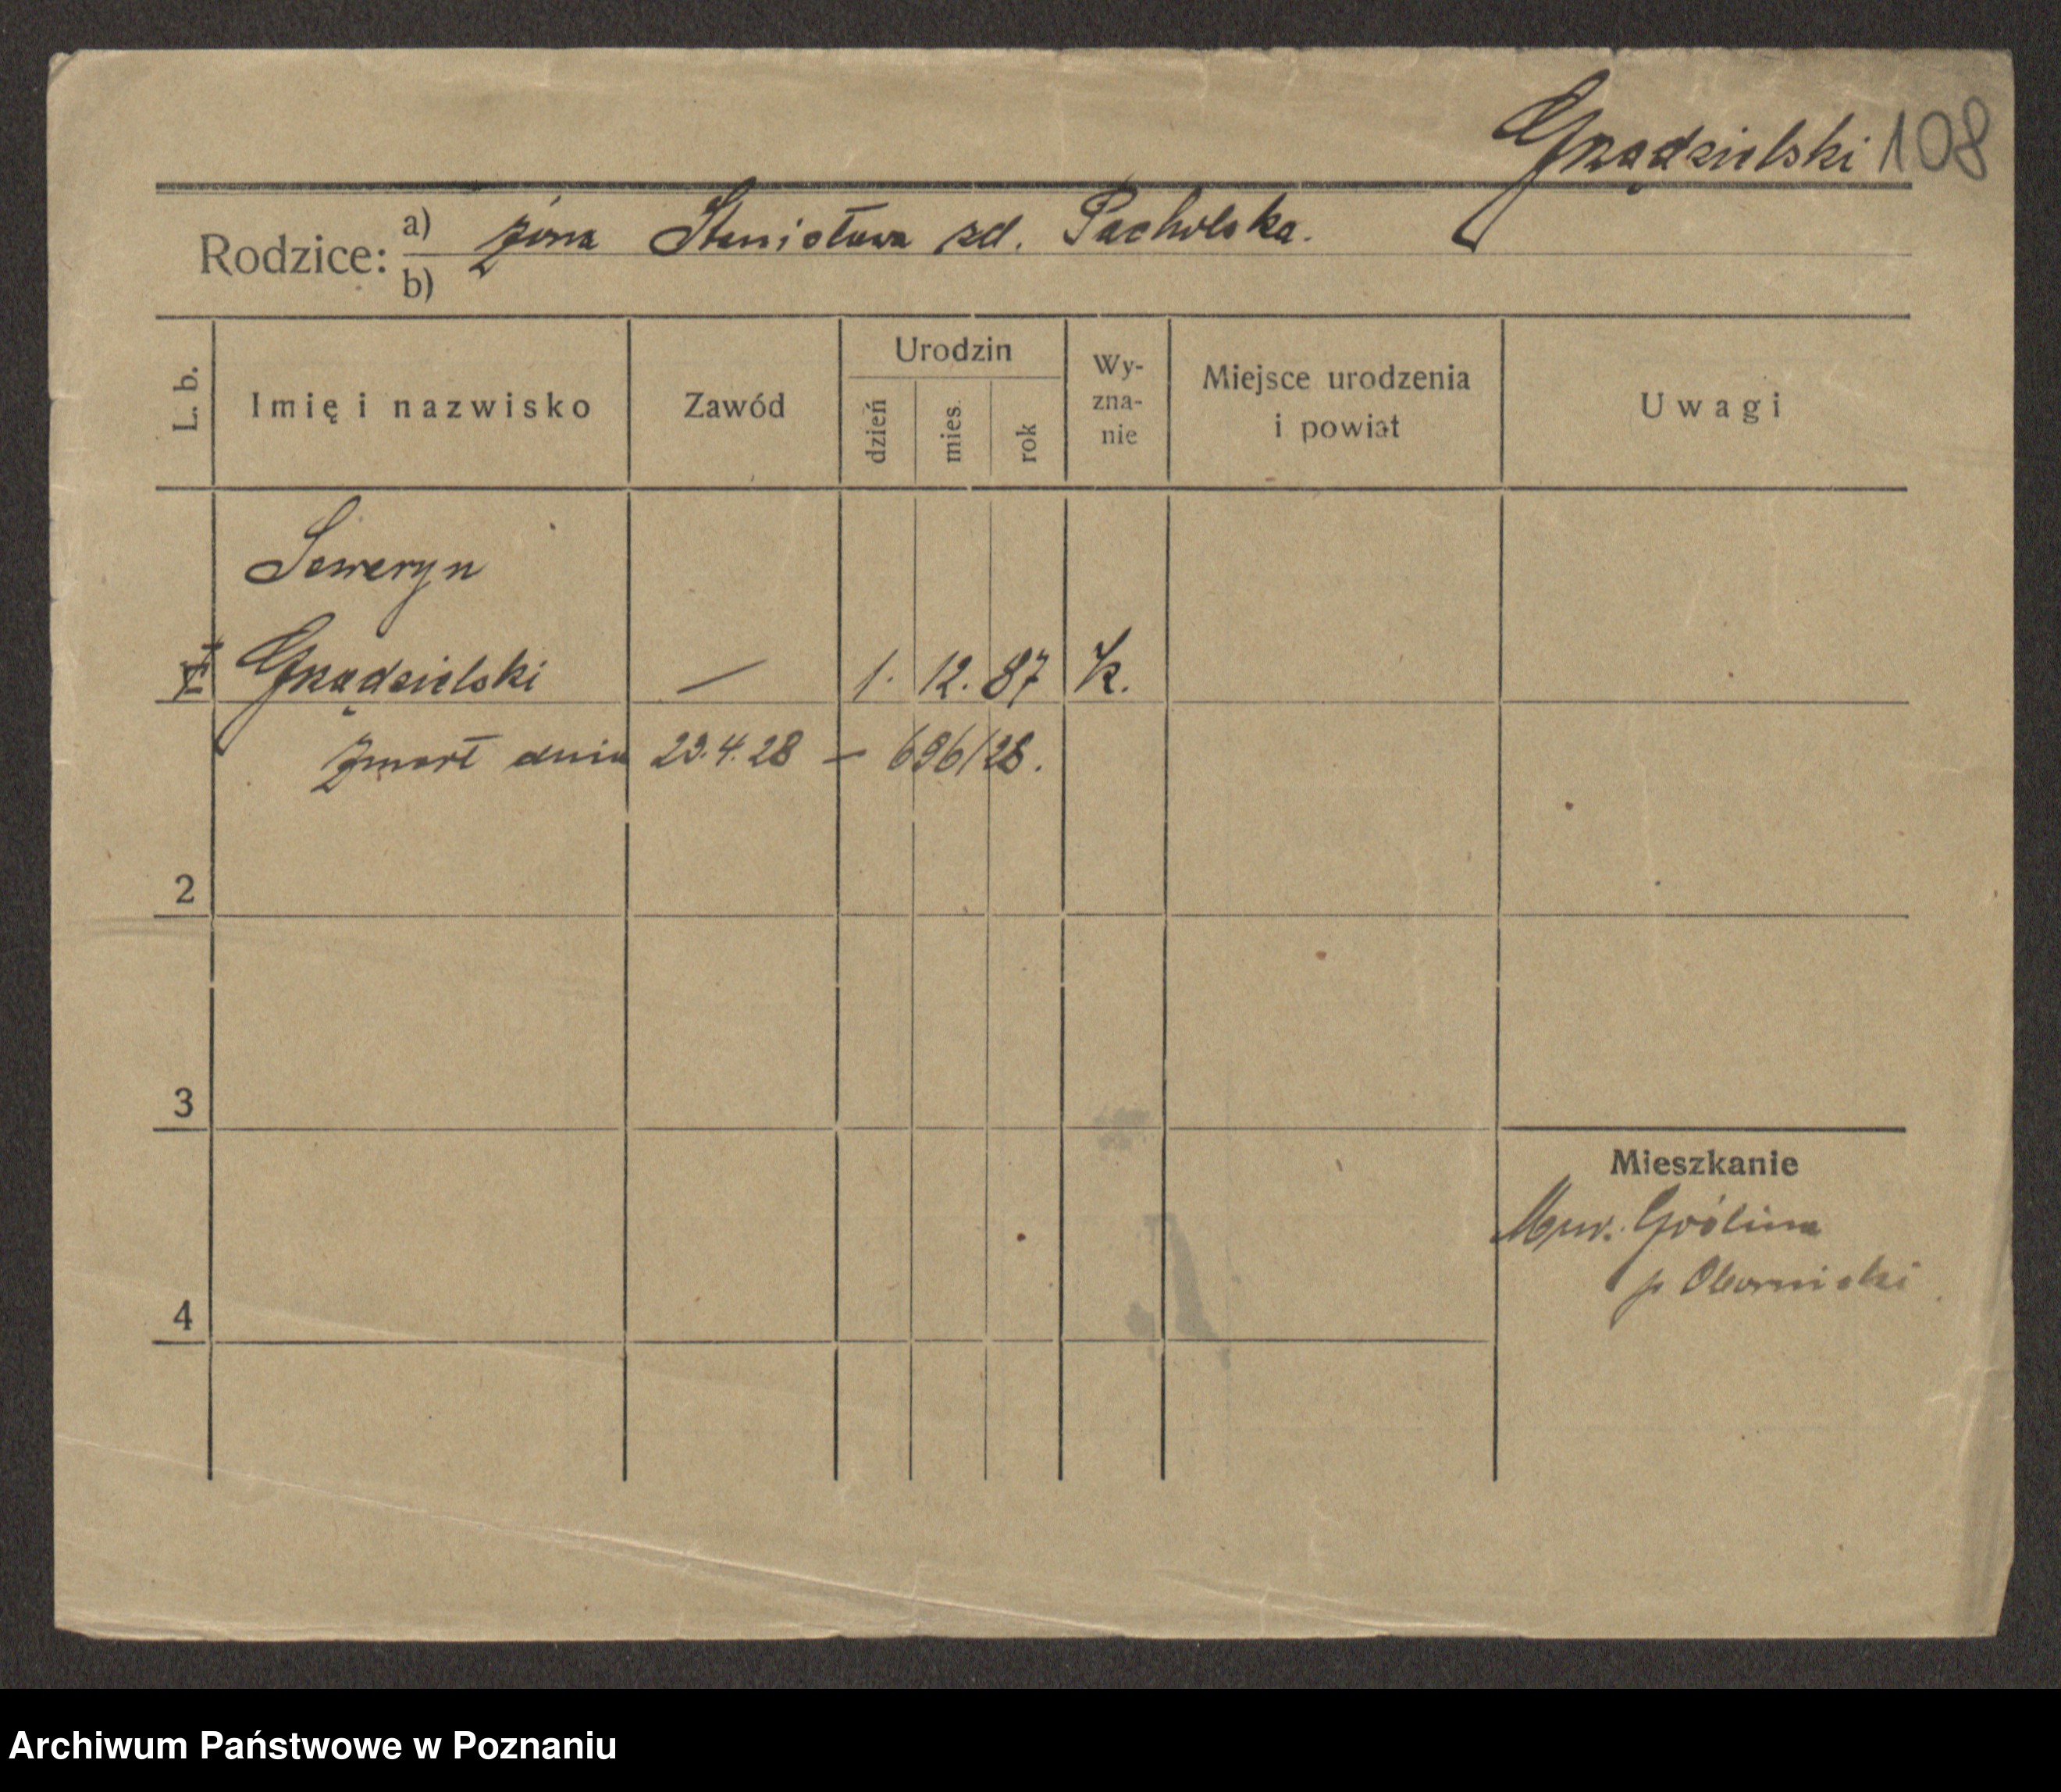 Grządzielski 108
Rodzice: a) żona Stanisława zd. Pacholska.
b)
L. b. Imię i nazwisko Zawód Urodzin dzień mies. rok Wy-zna-nie Miejsce urodzenia i powiat Uwagi
Seweryn
Grządzielski — 1. 12. 87 k.
Zmarł dnia 23.4.28 — 696/28.
2
3
Mieszkanie
Gólina
p. Obornicki
4
Archiwum Państwowe w Poznaniu